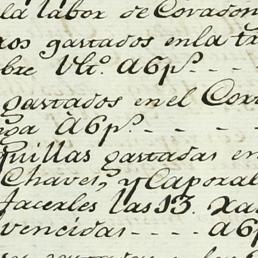 la labor de Covadon
ros gastados en la tr
bre Ulto. A6ps. - - -
gastados en el Cor
pa A6ps. - - - -
quillas gastadas en
Chaves, y Caporal
facerles las 13. Xa
vencidas - - - - A6p